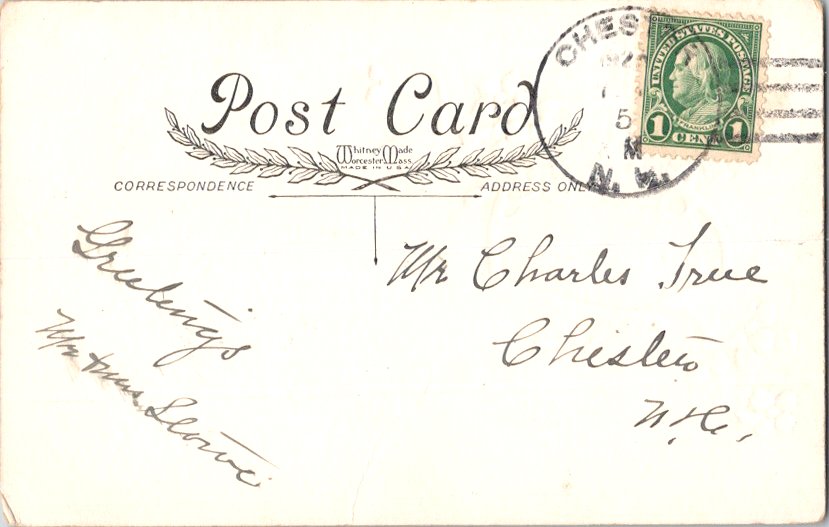 CHEST
5
M
N.H.
UNITED STATES POSTAGE
FRANKLIN
1 CENT 1
Post Card
Whitney Made
Worcester Mass
MADE IN U.S.A.
CORRESPONDENCE
ADDRESS ONL
Greetings
Mr & Mrs
Mr Charles True
Chester
N.H.,